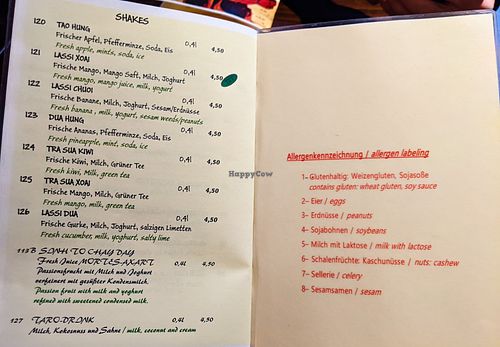 SHAKES
120 TAO HUNG 0,4l 4,50
Frischer Apfel, Pfefferminze, Soda, Eis
Fresh apple, mints, soda, ice
121 LASSI XOAI
Frische Mango, Mango Saft, Milch, Joghurt 0,4l 4,50
Fresh mango, mango juice, milk, yogurt
122 LASSI CHUOI
Frische Banane, Milch, Joghurt, Sesam/Erdnüsse 0,4l 4,50
Fresh banana , milk, yogurt, sesam weeds/peanuts
123 DUA HUNG 0,4l 4,50
Frische Ananas, Pfefferminze, Soda, Eis
Fresh pineapple, mint, soda, ice
124 TRA SUA KIWI 0,4l 4,50
Frische Kiwi, Milch, Grüner Tee
Fresh kiwi, Milk, green tea
125 TRA SUA XOAI 0,4l 4,50
Frische Mango, Milch, Grüner Tee
Fresh mango, milk, green tea
126 LASSI DUA 0,4l 4,50
Frische Gurke, Milch, Joghurt, salzigen Limetten
Fresh cucumber, milk, yoghurt, salty lime
113B SINH TO CHAY DAY
Fresh Juice MORTESAKART 0,4l 4,50
Passionsfrucht mit Milch und Joghurt
verfeinert mit gesüßter Kondensmilch.
Passion fruit with milk and yoghurt
refened with sweetened condensed milk.
127 TARO-DRINK 0,4l 4,50
Milch, Kokosnuss und Sahne / milk, coconut and cream
Allergenkennzeichnung / allergen labeling
1- Glutenhaltig: Weizengluten, Sojasoße
contains gluten: wheat gluten, soy sauce
2- Eier / eggs
3- Erdnüsse / peanuts
4- Sojabohnen / soybeans
5- Milch mit Laktose / milk with lactose
6- Schalenfrüchte: Kaschunüsse / nuts: cashew
7- Sellerie / celery
8- Sesamsamen / sesam
HappyCow